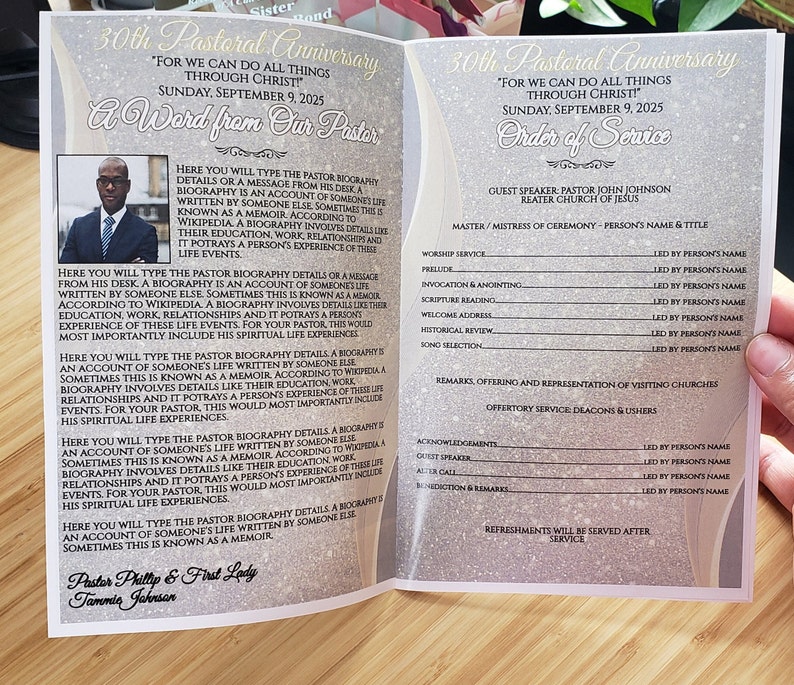 Sister
Bond
30th Pastoral Anniversary
"For we can do all things
through Christ!"
Sunday, September 9, 2025
A Word from Our Pastor
Here you will type the pastor biography
details or a message from his desk. A
biography is an account of someone's life
written by someone else. Sometimes this is
known as a memoir. According to
Wikipedia. A biography involves details like
their education, work, relationships and
it potrays a person's experience of these
life events.
Here you will type the pastor biography details or a message
from his desk. A biography is an account of someone's life
written by someone else. Sometimes this is known as a memoir.
According to Wikipedia. A biography involves details like their
education, work, relationships and it potrays a person's
experience of these life events. For your pastor, this would
most importantly include his spiritual life experiences.
Here you will type the pastor biography details. A biography is
an account of someone's life written by someone else.
Sometimes this is known as a memoir. According to Wikipedia. A
biography involves details like their education, work,
relationships and it potrays a person's experience of these life
events. For your pastor, this would most importantly include
his spiritual life experiences.
Here you will type the pastor biography details. A biography is
an account of someone's life written by someone else.
Sometimes this is known as a memoir. According to Wikipedia. A
biography involves details like their education, work,
relationships and it potrays a person's experience of these life
events. For your pastor, this would most importantly include
his spiritual life experiences.
Here you will type the pastor biography details. A biography is
an account of someone's life written by someone else.
Sometimes this is known as a memoir.
Pastor Phillip & First Lady
Tammie Johnson
30th Pastoral Anniversary
"For we can do all things
through Christ!"
Sunday, September 9, 2025
Order of Service
GUEST SPEAKER: PASTOR JOHN JOHNSON
REATER CHURCH OF JESUS
MASTER / MISTRESS OF CEREMONY - PERSON'S NAME & TITLE
WORSHIP SERVICE LED BY PERSON'S NAME
PRELUDE LED BY PERSON'S NAME
INVOCATION & ANOINTING LED BY PERSON'S NAME
SCRIPTURE READING LED BY PERSON'S NAME
WELCOME ADDRESS LED BY PERSON'S NAME
HISTORICAL REVIEW LED BY PERSON'S NAME
SONG SELECTION LED BY PERSON'S NAME
REMARKS, OFFERING AND REPRESENTATION OF VISITING CHURCHES
OFFERTORY SERVICE: DEACONS & USHERS
ACKNOWLEDGEMENTS LED BY PERSON'S NAME
GUEST SPEAKER LED BY PERSON'S NAME
ALTER CALL LED BY PERSON'S NAME
BENEDICTION & REMARKS LED BY PERSON'S NAME
REFRESHMENTS WILL BE SERVED AFTER
SERVICE